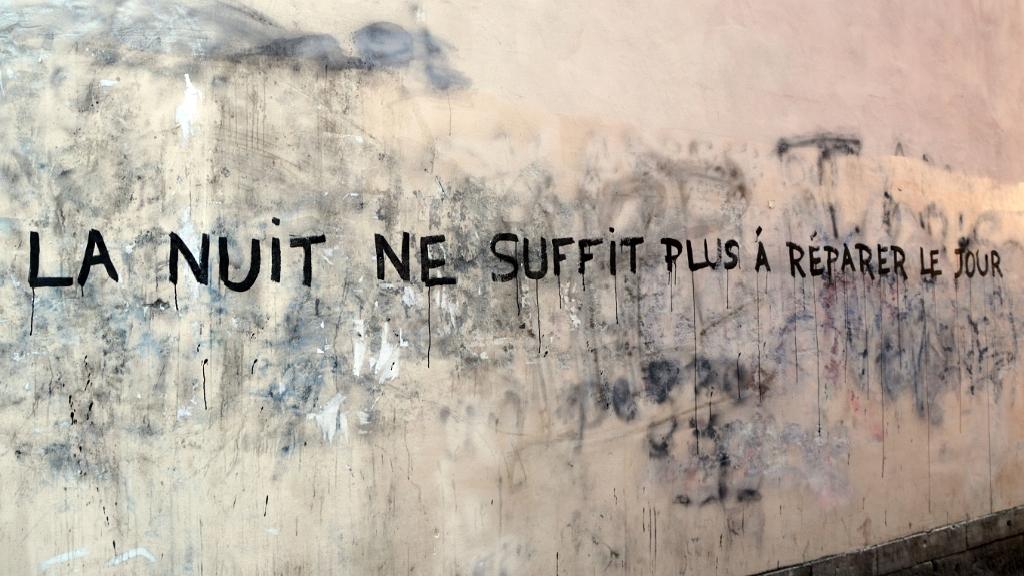 LA NUiT NE SUFFiT PLUS Á RÉPARER LE JOUR